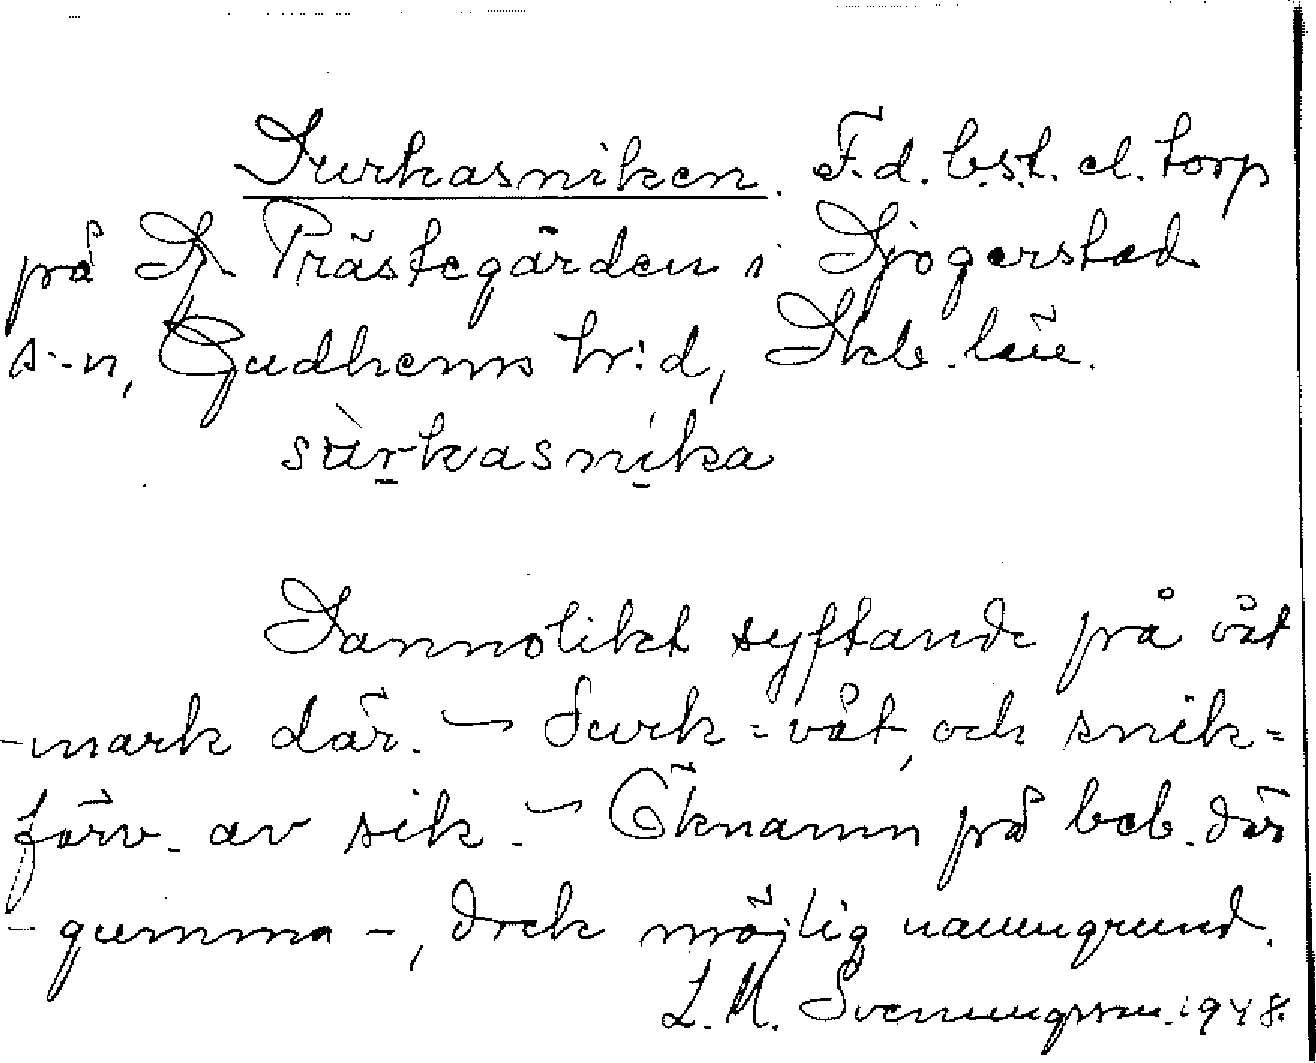 Surkasniken. F.d. bst. el. torp
på Sj. Prästegården i Sjogerstad
s-n, Gudhems hr:d, Skb. län.
sùrkasnika
Sannolikt syftande på våt
-mark där. – Surk = våt, och snik =
förv. av sik. – Öknamn på beb. där
- gumma -, dock möjlig namngrund.
L. M. Svenungsson. 1948.